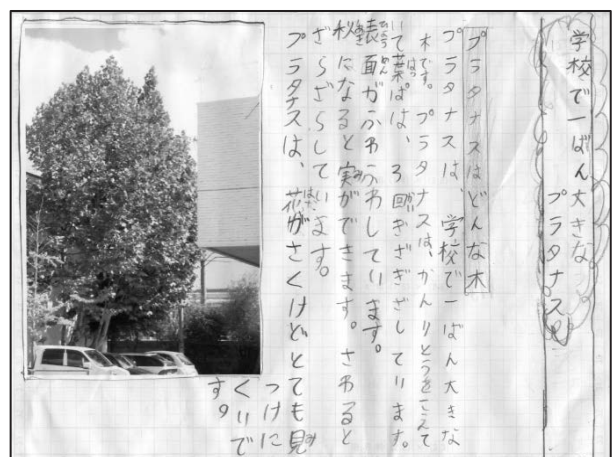 学校で一ばん大きな
プラタナス
プラタナスはどんな木
プラタナスは、学校で一ばん大きな
木です。プラタナスは、かんりとうをこえて
いて葉っぱは、3回ぎざぎざしています。
表面がふわふわしています。
秋になると実ができます。さわると
ざらざらしています。
プラタナスは、花がさくけどとても見
つけに
くいで
す。